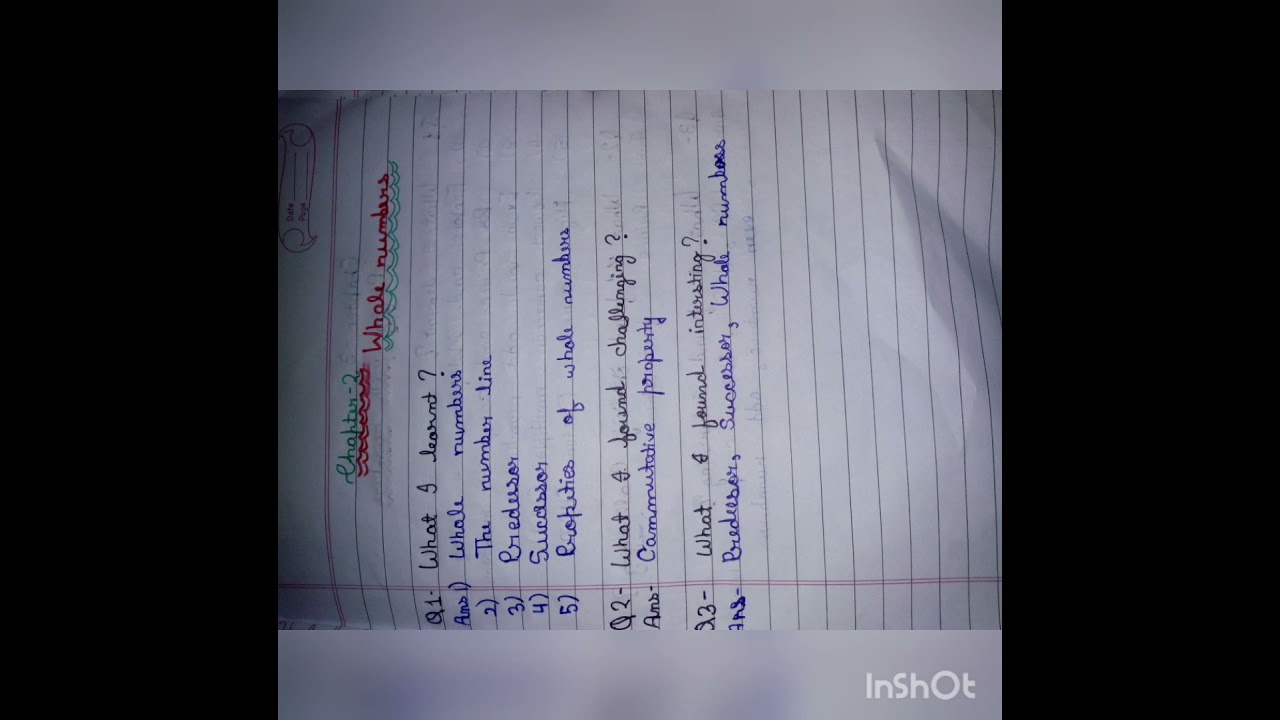 Date
Page
Chapter-2
Whole numbers
Q1- What I learnt?
Ans 1) Whole numbers
2) The number line
3) Predessor
4) Successor
5) Properties of whole numbers
Q2- What I found challenging?
Ans- Commutative property
Q3- What I found intersting?
Ans- Predessor, Successor, Whole numbers
InShOt